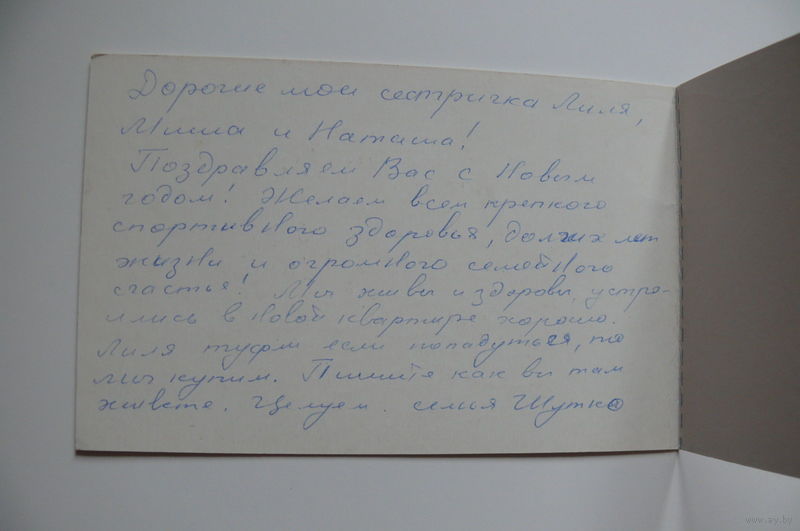 Дорогие мои сестричка Лиля,
Миша и Наташа!
Поздравляем Вас с Новым
годом! Желаем всем крепкого
спортивного здоровья, долгих лет
жизни и огромного семейного
счастья! Мы живы и здоровы, устро-
ились в новой квартире хорошо.
Лиля туфли если попадуться, то
мы купим. Пишите как вы там
живете. Целуем. семья Шутко
www.ay.by